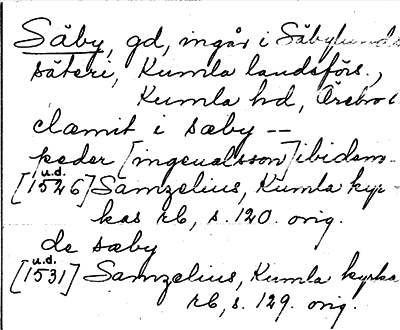 Säby, gd, ingår i Säbylunds
säteri, Kumla landsförs.,
Kumla hd, Örebro l.
clemit i sæby --
peder [ingeualsson] ibidem-
u.d.
[1526] Samzelius, Kumla kyr-
kas rb, s. 120. orig.
de sæby
u.d.
[1531] Samzelius, Kumla kyrka
rb, s. 129. orig.